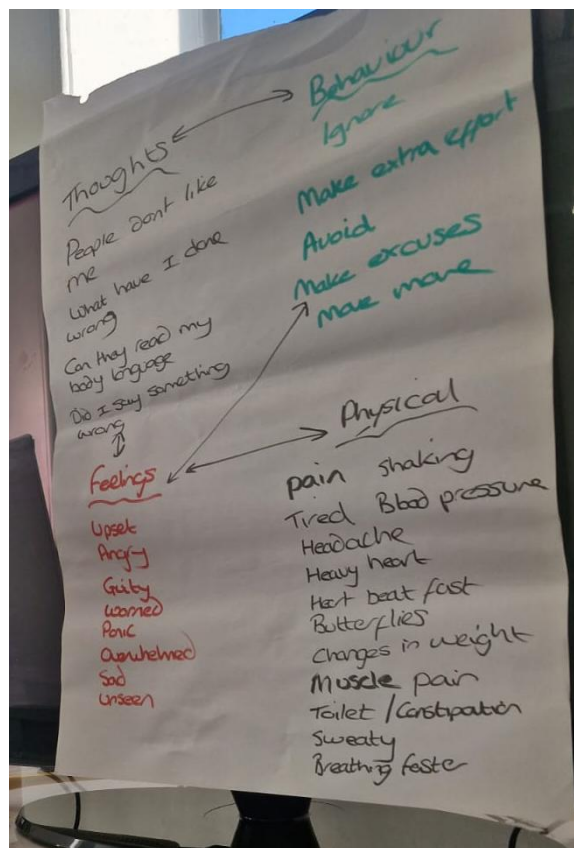 Thoughts
People dont like
me
What have I done
wrong
Can they read my
body language
Did I say something
wrong
Behaviour
Ignore
Make extra effort
Avoid
Make excuses
Move more
Feelings
Upset
Angry
Guilty
worried
Panic
Overwhelmed
Sad
Unseen
Physical
pain shaking
Tired Blood pressure
Headache
Heavy heart
Heart beat fast
Butterflies
Changes in weight
Muscle pain
Toilet / Constipation
Sweaty
Breathing faster